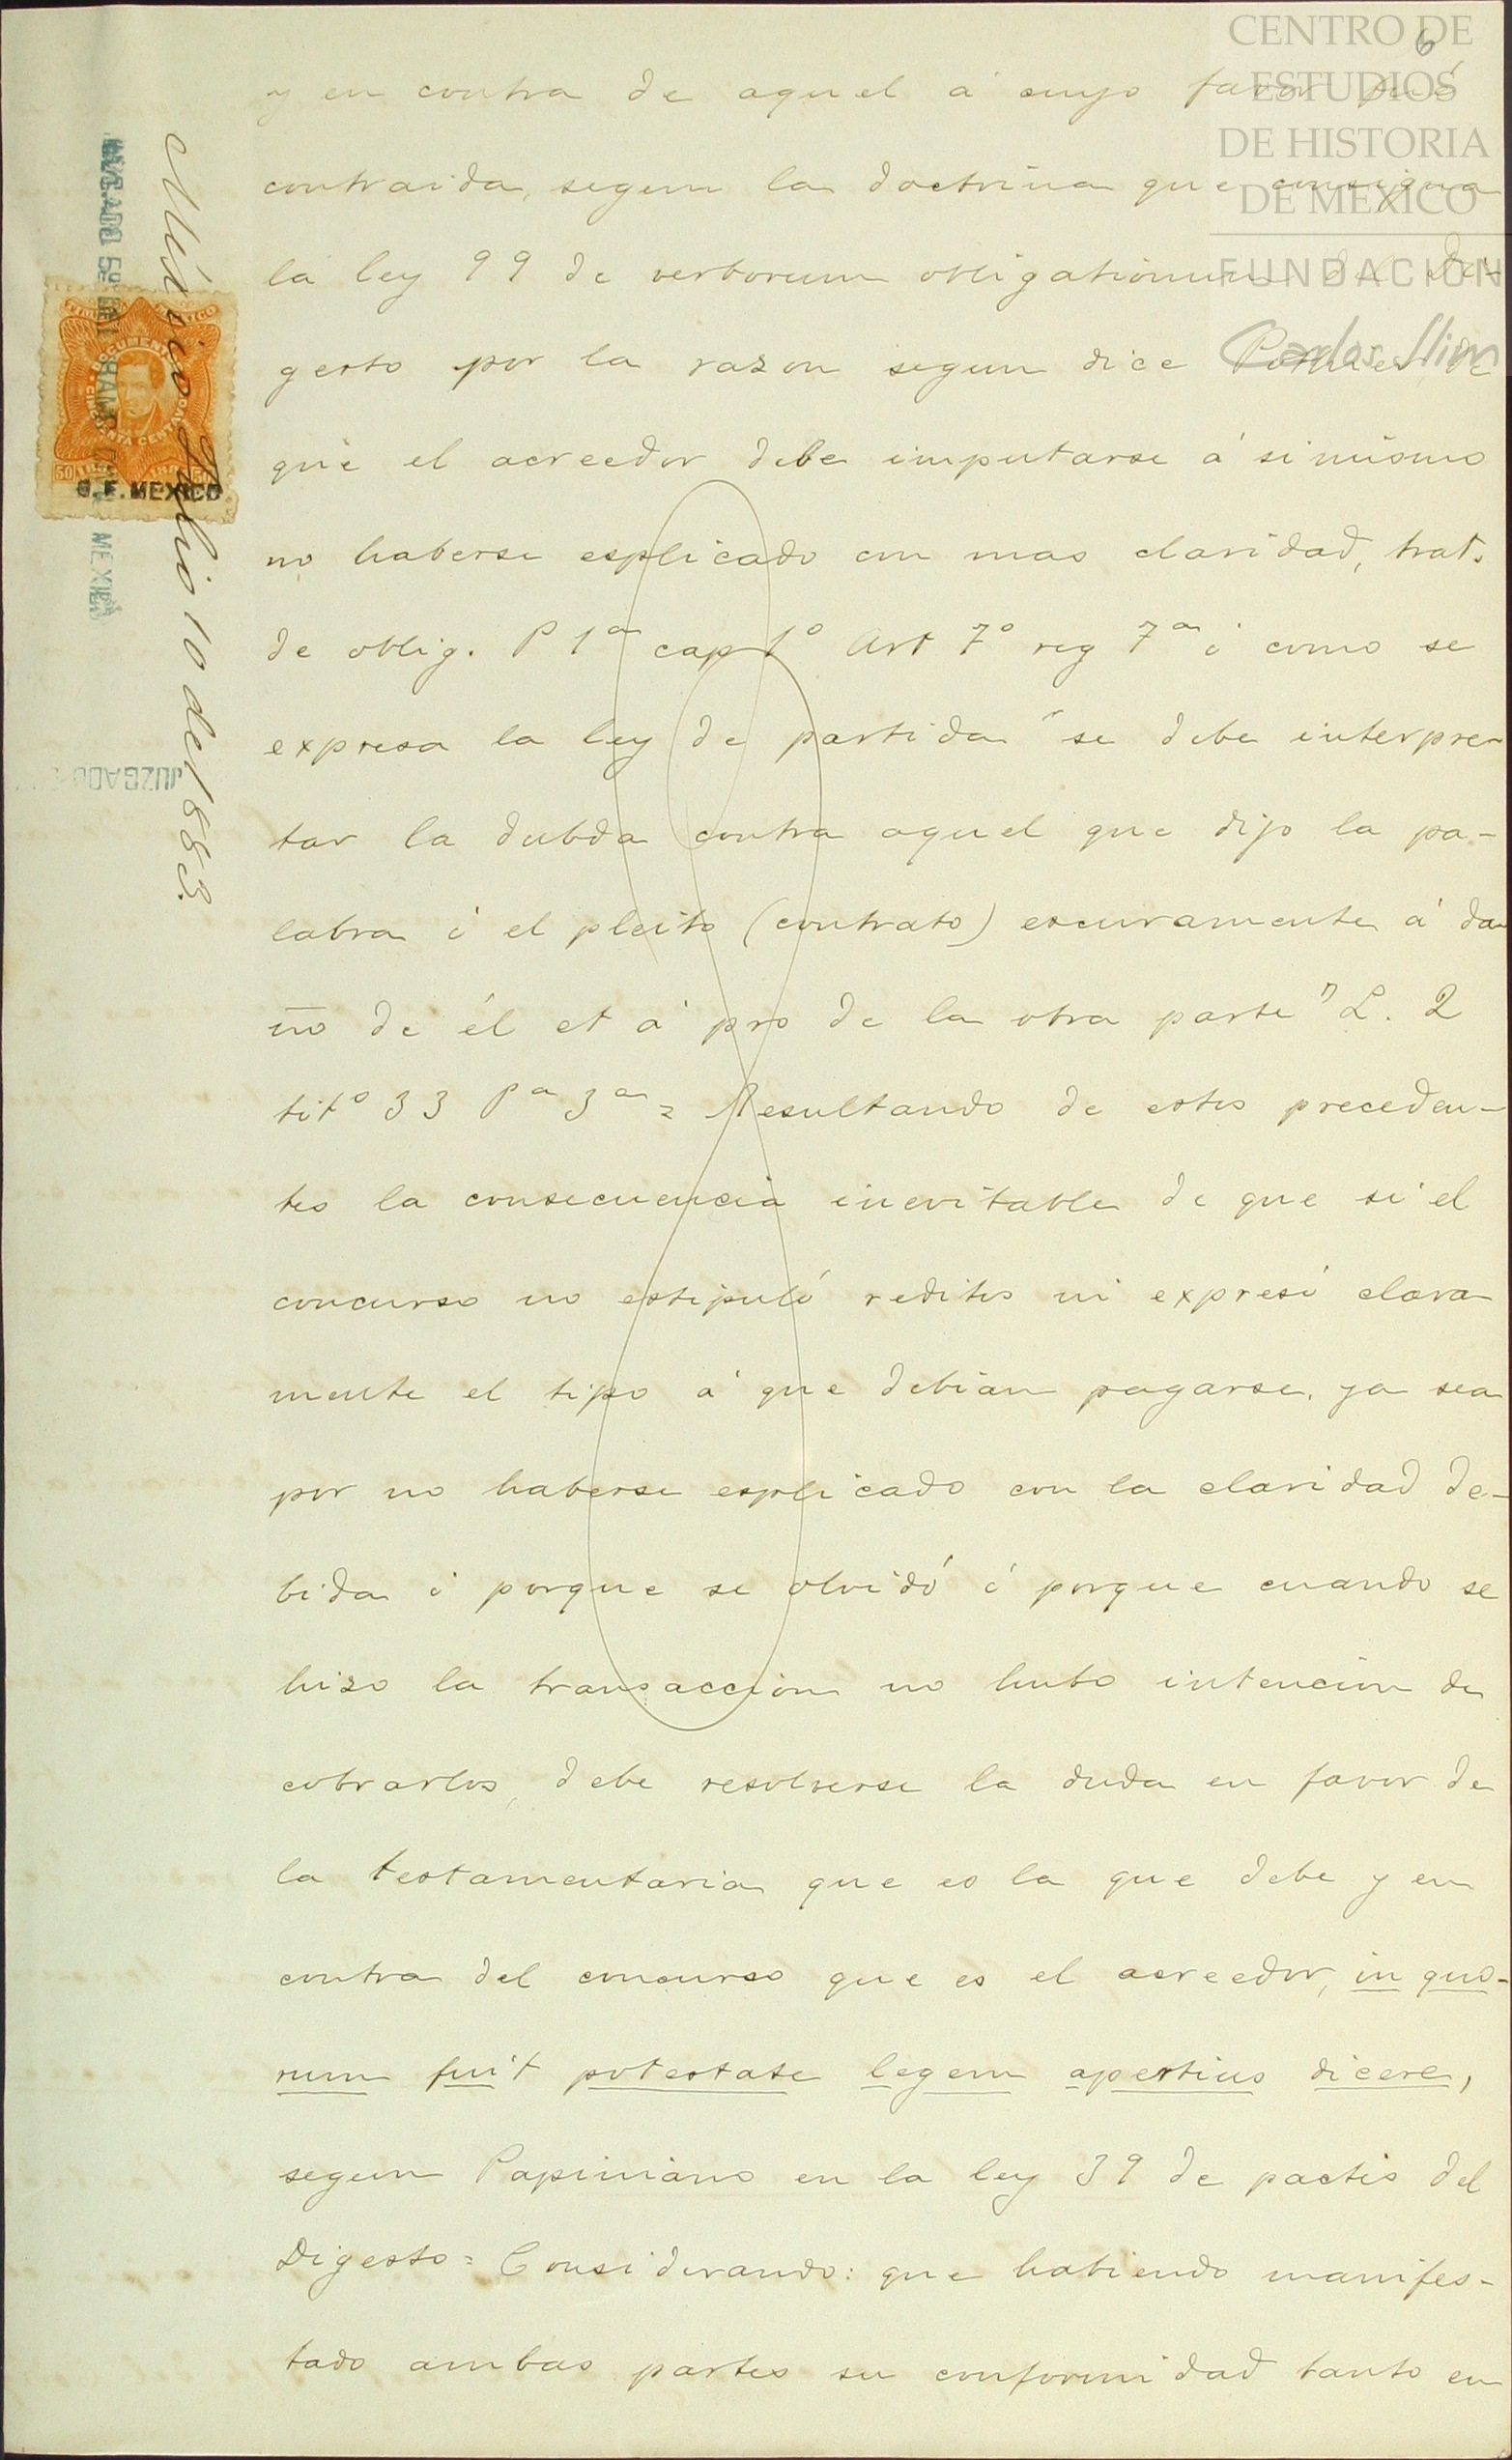 6
CENTRO DE
ESTUDIOS
DE HISTORIA
DE MEXICO
FUNDACION
Carlos Slim
y en contra de aquel á cuyo favor fué
contraida, segun la doctrina que consigna
la ley 99 de verborum obligationum del Di-
gesto por la razon segun dice Pothier de
que el acreedor debe imputarse á si mismo
no haberse esplicado con mas claridad, trat.
de oblig. P 1ª cap 1º Art 7º reg 7ª ó como se
expresa la ley de partida "se debe interpre-
tar la dubda contra aquel que dijo la pa-
labra ó el pleito (contrato) escuramente á da
ño de él et á pro de la otra parte" L. 2
titº 33 Pª 3ª = Resultando de estos preceden-
tes la consecuencia inevitable de que si el
concurso no estipuló reditos ni expresó clara
mente el tipo á que debian pagarse, ya sea
por no haberse esplicado con la claridad de-
bida ó porque se olvidó ó porque cuando se
hizo la transaccion no hubo intencion de
cobrarlos, debe resolverse la duda en favor de
la testamentaria que es la que debe y en
contra del concurso que es el acreedor, in quo-
rum fuit potestate legem apertius dicere,
segun Papiniano en la ley 39 de pactis del
Digesto = Considerando: que habiendo manifes-
tado ambas partes su conformidad tanto en
México Julio 10 de 1883.
D. F. MEXICO
50
MEXICO
JUZGADO